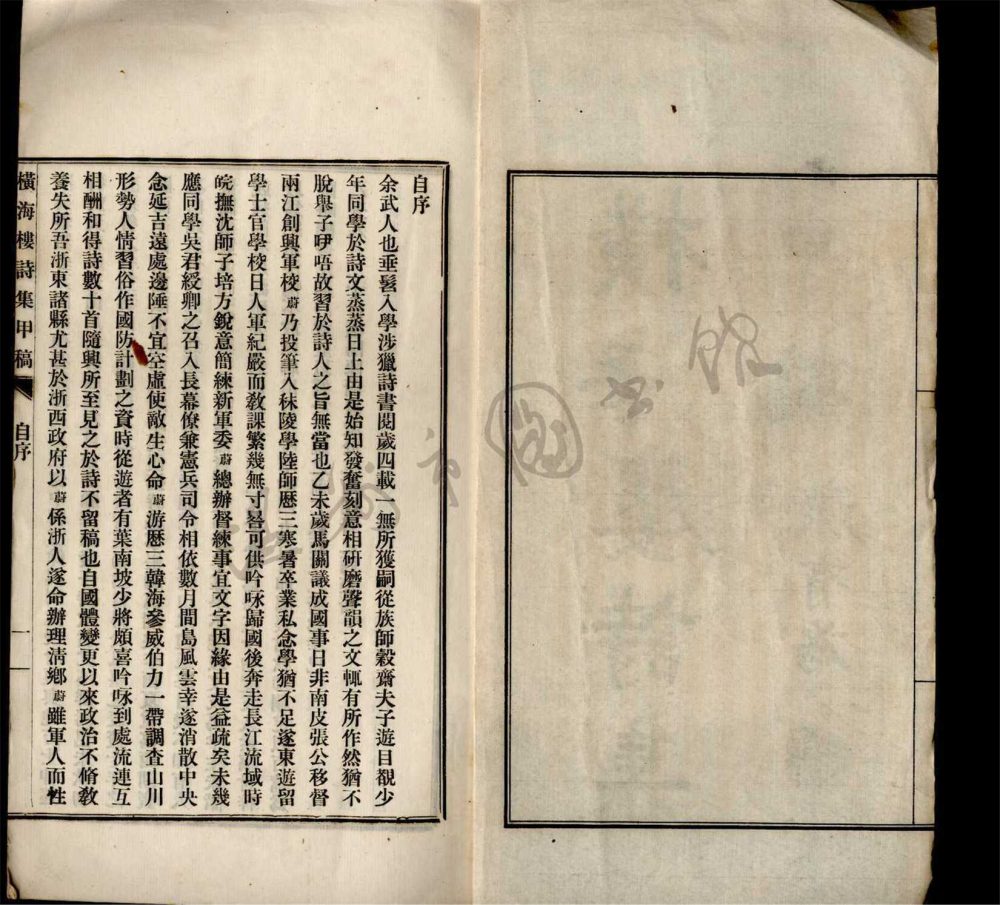 自序
余武人也垂髫入學涉獵詩書閱歲四載一無所獲嗣從族師穀齋夫子遊目覩少
年同學於詩文蒸蒸日上由是始知發奮刻意相研磨聲韻之文輒有所作然猶不
脫舉子咿唔故習於詩人之旨無當也乙未歲馬關議成國事日非南皮張公移督
兩江創興軍校蔚乃投筆入秣陵學陸師歷三寒暑卒業私念學猶不足遂東遊留
學士官學校日人軍紀嚴而敎課繁幾無寸晷可供吟咏歸國後奔走長江流域時
皖撫沈師子培方銳意簡練新軍委蔚總辦督練事宜文字因緣由是益疏矣未幾
應同學吳君綬卿之召入長幕僚兼憲兵司令相依數月間島風雲幸遂消散中央
念延吉遠處邊陲不宜空虛使敵生心命蔚游歷三韓海參威伯力一帶調查山川
形勢人情習俗作國防計劃之資時從遊者有葉南坡少將頗喜吟咏到處流連互
相酬和得詩數十首隨興所至見之於詩不留稿也自國體變更以來政治不脩敎
養失所吾浙東諸縣尤甚於浙西政府以蔚係浙人遂命辦理淸鄉蔚雖軍人而性
橫海樓詩集甲稿
自序
一
圖書館